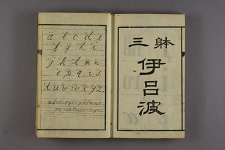 三躰
伊呂波
a b c d e
f g h i
j k l m n
o p q r s
t u v w x y z